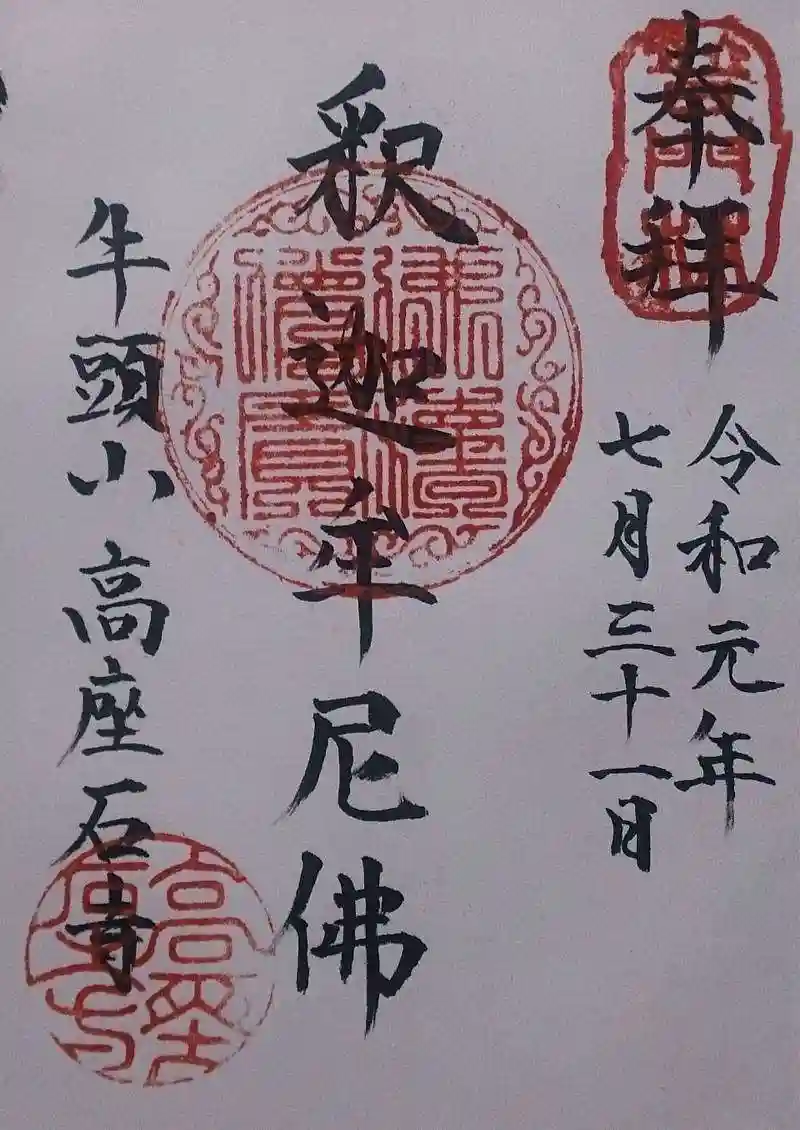 奉拝
令和元年
七月三十一日
釈迦牟尼佛
牛頭山 高座石寺